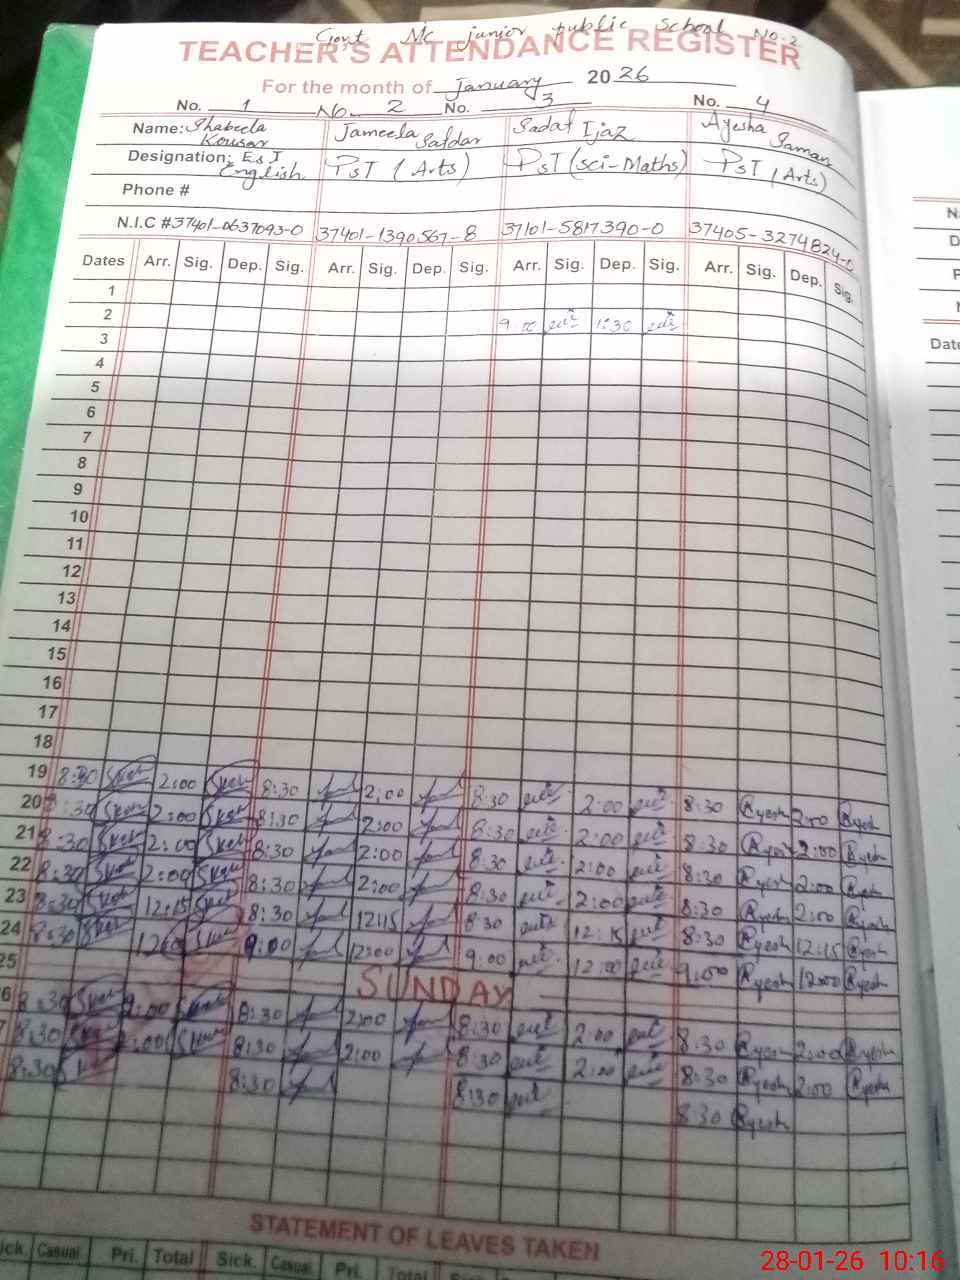 Govt Mc junior public School No:2
TEACHER'S ATTENDANCE REGISTER
For the month of January 2026
No. 1 No. 2 No. 3 No. 4
Name: Shabeela Kousar Jameela Safdar Sadaf Ijaz Ayesha Saman
Designation: EST English PST (Arts) PST (sci-Maths) PST (Arts)
Phone #
N.I.C # 37401-0637093-0 37401-1390567-8 37101-5817390-0 37405-3274824-0
Dates Arr. Sig. Dep. Sig. Arr. Sig. Dep. Sig. Arr. Sig. Dep. Sig. Arr. Sig. Dep. Sig.
1
2 9:00 1:30
3
4
5
6
7
8
9
10
11
12
13
14
15
16
17
18
19 8:30 2:00 8:30 2:00 8:30 2:00 8:30 Ayesh 2:00 Ayesh
20 :30 2:00 8:30 2:00 8:30 2:00 8:30 Ayesh 2:00 Ayesh
21 8:30 2:00 8:30 2:00 8:30 2:00 8:30 Ayesh 2:00 Ayesh
22 8:30 2:00 8:30 2:00 8:30 2:00 8:30 Ayesh 2:00 Ayesh
23 8:30 12:15 8:30 12:15 8:30 12:15 8:30 Ayesh 12:15 Ayesh
24 8:30 12:00 9:00 12:00 9:00 12:00 9:00 Ayesh 12:00 Ayesh
25 SUNDAY
6 8:30 2:00 8:30 2:00 8:30 2:00 8:30 Ayesh 2:00 Ayesha
7 8:30 2:00 8:30 2:00 8:30 2:00 8:30 Ayesh 2:00 Ayesha
8:30 8:30 8:30 8:30 Ayesh
STATEMENT OF LEAVES TAKEN
ick. Casual Pri. Total Sick. Casual Pri. Total
N
D
P
N
Date
28-01-26 10:16